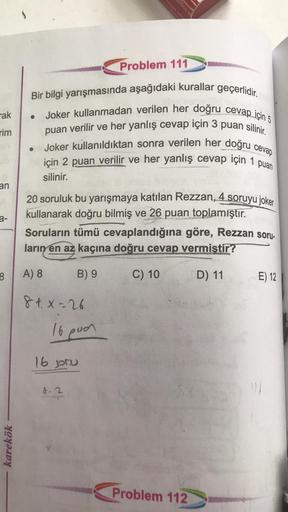 Problem 111
Bir bilgi yarışmasında aşağıdaki kurallar geçerlidir.
• Joker kullanmadan verilen her doğru cevap için 5
puan verilir ve her yanlış cevap için 3 puan silinir.
• Joker kullanıldıktan sonra verilen her doğru cevap
için 2 puan verilir ve her yanlış cevap için 1 puan
silinir.
20 soruluk bu yarışmaya katılan Rezzan, 4 soruyu joker
kullanarak doğru bilmiş ve 26 puan toplamıştır.
Soruların tümü cevaplandığına göre, Rezzan soru-
ların en az kaçına doğru cevap vermiştir?
A) 8 B) 9 C) 10 D) 11 E) 12
8+ x = 26
16 puan
16 soru
rak
rim
an
a-
8
karekök
Problem 112